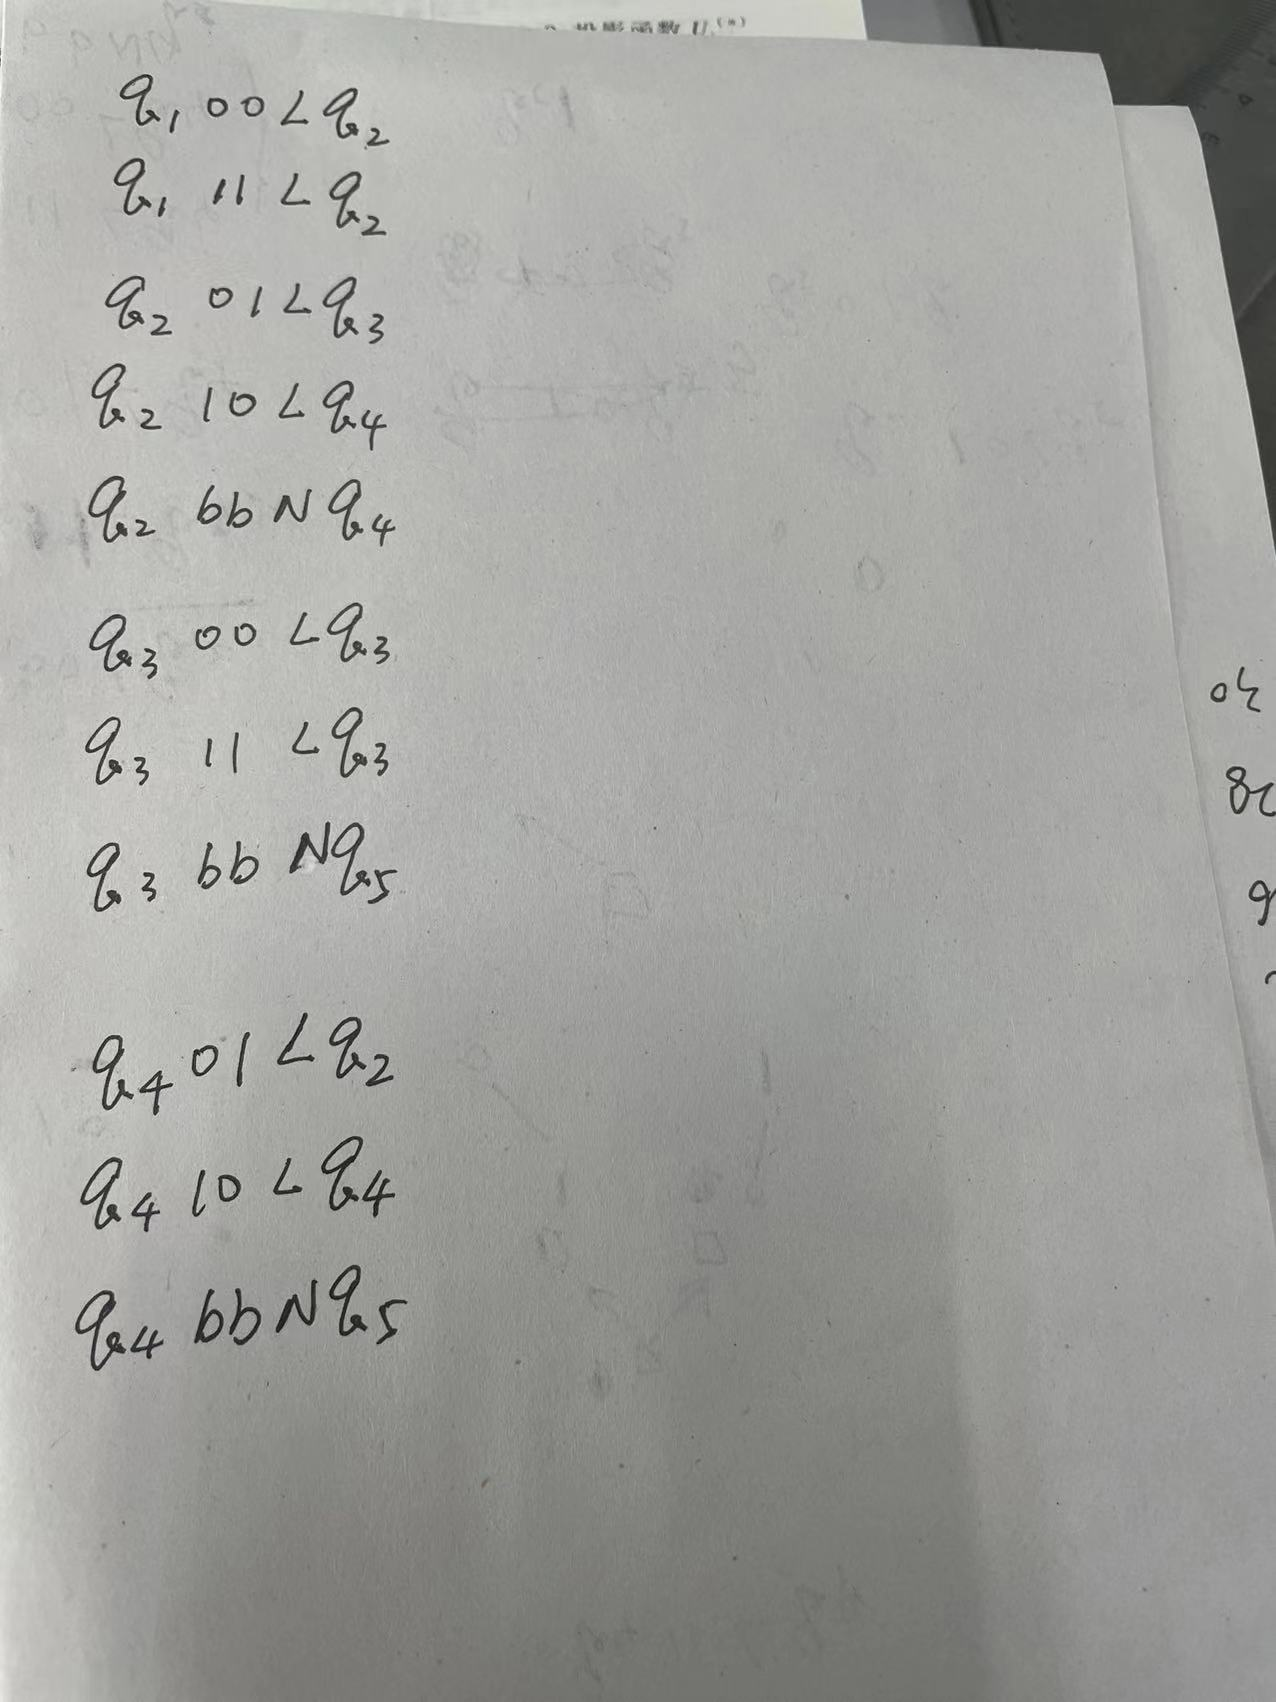 投影函数 U
q₁ 00 L q₂
q₁ 11 L q₂
q₂ 01 L q₃
q₂ 10 L q₄
q₂ bb N q₄
q₃ 00 L q₃
q₃ 11 L q₃
q₃ bb N q₅
q₄ 01 L q₂
q₄ 10 L q₄
q₄ bb N q₅